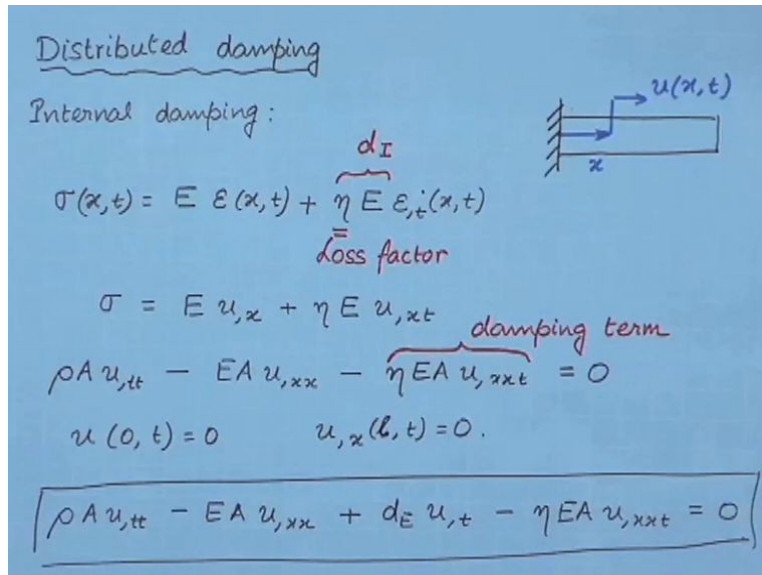 Distributed damping
Internal damping:
u(x,t)
x
d_I
σ(x,t) = E ε(x,t) + η E ε,_t(x,t)
Loss factor
σ = E u,_x + η E u,_xt
damping term
ρA u,_tt − EA u,_xx − ηEA u,_xxt = 0
u(0,t) = 0 u,_x(l,t) = 0.
ρA u,_tt − EA u,_xx + d_E u,_t − ηEA u,_xxt = 0